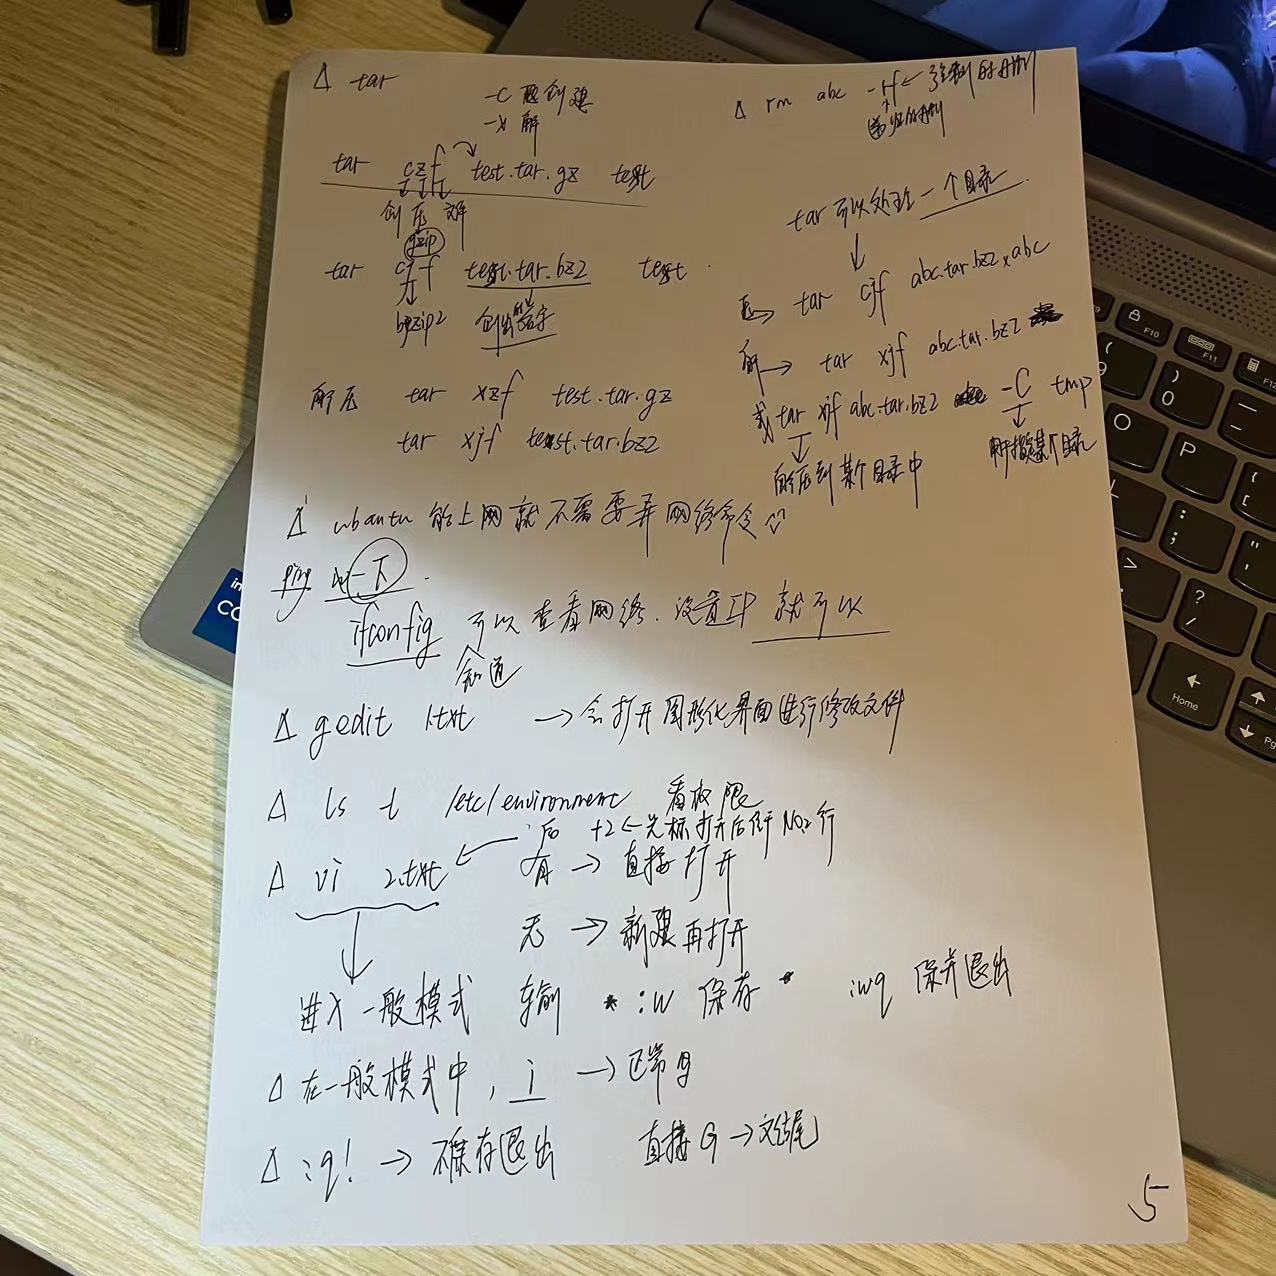 Δ tar
-c 创建
-x 解
tar czf test.tar.gz test
创 压 文件
gzip
tar cjf test.tar.bz2 test
bzip2 创出的名字
解压 tar xzf test.tar.gz
tar xjf test.tar.bz2
Δ rm abc -rf ← 强制的删除
递归的删除
tar 可以处理一个目录
压 → tar cjf abc.tar.bz2 abc
解 → tar xjf abc.tar.bz2
或 tar xjf abc.tar.bz2 -C tmp
解压到某个目录中
用于指定某个目录
Δ ubantu 能上网就不需要弄网络命令
ping 一下
ifconfig 可以查看网络.设置IP 就可以
知道
Δ gedit 1.txt → 会打开图形化界面进行修改文件
Δ ls -l /etc/environment 看权限
后 +2 ← 光标打开后行 No.2行
Δ vi 2.txt ← 有 → 直接打开
无 → 新建再打开
进入一般模式 输 :w 保存 :wq 保并退出
Δ 在一般模式中, i → 正常的
Δ :q! → 不保存退出 直接 G → 文结尾
5
Home
F10
F11